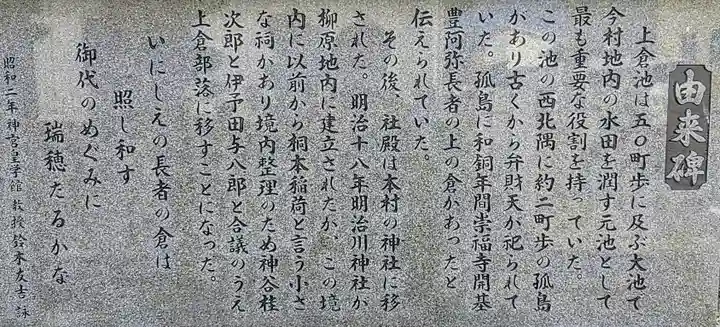 由来碑
上倉池は五〇町歩に及ぶ大池で
今村地内の水田を潤す元池として
最も重要な役割を持っていた。
この池の西北隅に約二町歩の孤島
があり古くから弁財天が祀られて
いた。孤島に和銅年間崇福寺開基
豊阿弥長者の上の倉があったと
伝えられていた。
その後、社殿は本村の神社に移
された。明治十八年明治川神社が
柳原地内に建立されたが、この境
内に以前から桐本稲荷と言う小さ
な祠があり境内整理のため神谷桂
次郎と伊予田与八郎と合議のうえ
上倉部落に移すことになった。
いにしえの長者の倉は
照し和す
御代のめぐみに
瑞穂たるかな
昭和二年神宮皇学館教授鈴木友吉詠